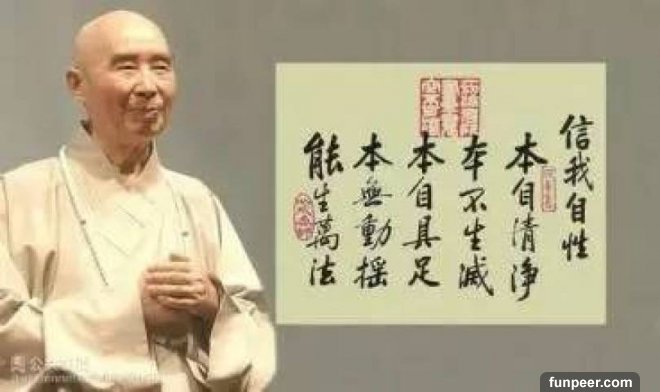 信我自性
本自清净
本不生滅
本自具足
本無動摇
能生萬法
funpeer.com